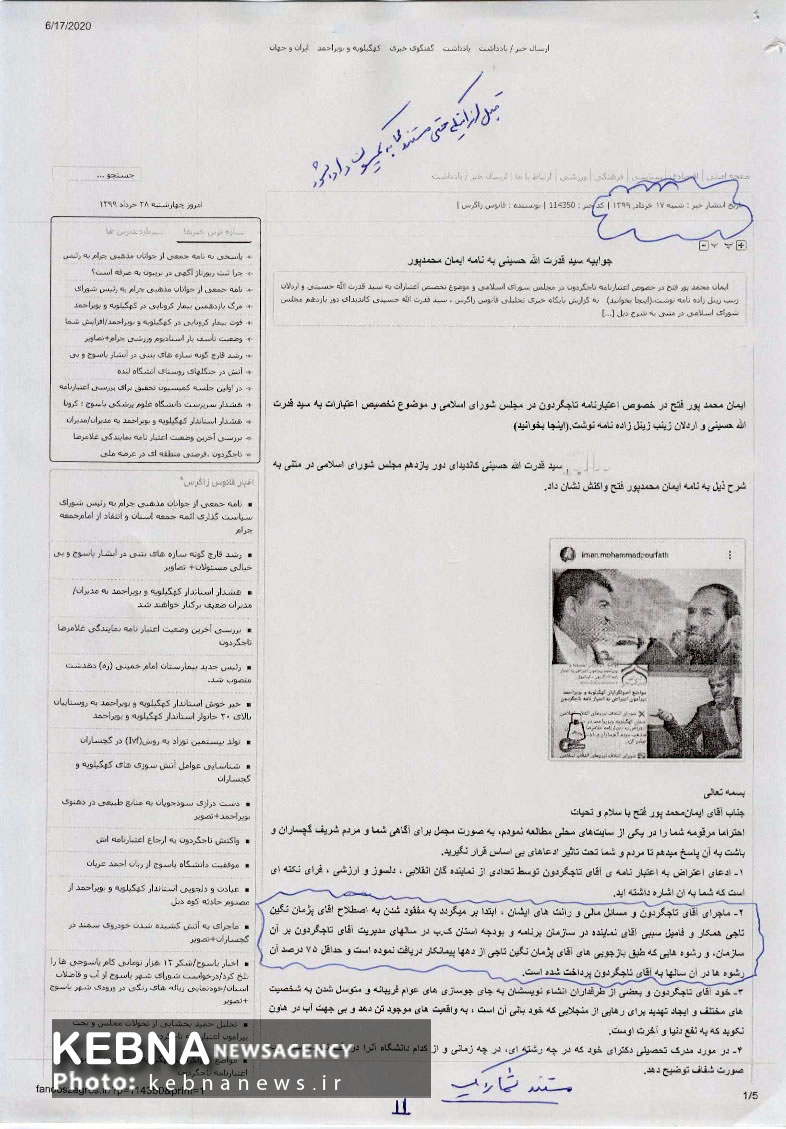 6/17/2020
ارسال خبر / یادداشت   یادداشت   گفتگوی خبری   کهگیلویه و بویراحمد   ایران و جهان
جستجو ...
ارسال خبر / یادداشت
امروز چهارشنبه ۲۸ خرداد ۱۳۹۹
تاریخ انتشار خبر : شنبه ۱۷ خرداد, ۱۳۹۹ | کد خبر : 114350 | نویسنده : فانوس زاگرس |
جوابیه سید قدرت الله حسینی به نامه ایمان محمدپور
ایمان محمد پور فتح در خصوص اعتبارنامه تاجگردون در مجلس شورای اسلامی و موضوع تخصیص اعتبارات به سید قدرت الله حسینی و اردلان
زینب زینل زاده نامه نوشت.(اینجا بخوانید) به گزارش پایگاه خبری تحلیلی فانوس زاگرس ، سید قدرت الله حسینی کاندیدای دور یازدهم مجلس
شورای اسلامی در متنی به شرح ذیل [...]
ایمان محمد پور فتح در خصوص اعتبارنامه تاجگردون در مجلس شورای اسلامی و موضوع تخصیص اعتبارات به سید قدرت
الله حسینی و اردلان زینب زینل زاده نامه نوشت.(اینجا بخوانید)
سید قدرت الله حسینی کاندیدای دور یازدهم مجلس شورای اسلامی در متنی به
شرح ذیل به نامه ایمان محمدپور فتح واکنش نشان داد.
iman.mohammadpourfath
بسمه تعالی
جناب آقای ایمان‌محمد پور فتح با سلام و تحیات
احتراما مرقومه شما را در یکی از سایت‌های محلی مطالعه نمودم، به صورت مجمل برای آگاهی شما و مردم شریف گچساران و
باشت به آن پاسخ میدهم تا مردم و شما تحت تاثیر ادعاهای بی اساس قرار نگیرید.
۱- ادعای اعتراض به اعتبار نامه ی آقای تاجگردون توسط تعدادی از نماینده گان انقلابی ، دلسوز و ارزشی ، فرای نکته ای
است که شما به ان اشاره داشته اید.
۲- ماجرای آقای تاجگردون و مسائل مالی و رانت های ایشان ، ابتدا بر میگردد به مفقود شدن به اصطلاح آقای پژمان نگین
تاجی همکار و فامیل سببی آقای نماینده در سازمان برنامه و بودجه استان ک.ب در سالهای مدیریت آقای تاجگردون بر آن
سازمان، و رشوه هایی که طبق بازجویی های آقای پژمان نگین تاجی از دهها پیمانکار دریافت نموده است و حداقل ۷۵ درصد آن
رشوه ها در آن سالها به آقای تاجگردون پرداخت شده است.
۳- خود آقای تاجگردون و بعضی از طرفداران انشاء نویسشان به جای جوسازی های عوام فریبانه و متوسل شدن به شخصیت
های مختلف و ایجاد تهدید برای رهایی از منجلابی که خود بانی آن است ، به واقعیت های موجود تن دهد و بی جهت آب در هاون
نکوبد که به نفع دنیا و آخرت اوست.
۴- در مورد مدرک تحصیلی دکترای خود که در چه رشته ای، در چه زمانی و از کدام دانشگاه آنرا
صورت شفاف توضیح دهد.
تازه ترین خبرها   پربازدیدترین ها
پاسخی به نامه جمعی از جوانان مذهبی چرام به رئیس
چرا ثبت رپورتاژ آگهی در تریبون به صرفه است؟
نامه جمعی از جوانان مذهبی چرام به رئیس شورای
مرگ یازدهمین بیمار کرونایی در کهگیلویه و بویراحمد
فوت بیمار کرونایی در کهگیلویه و بویراحمد/افزایش شما
وضعیت تأسف بار استادیوم ورزشی چرام+تصاویر
رشد قارچ گونه سازه های بتنی در آبشار یاسوج و بی
آتش در جنگلهای روستای آتشگاه لنده
در اولین جلسه کمیسیون تحقیق برای بررسی اعتبارنامه
هشدار سرپرست دانشگاه علوم پزشکی یاسوج : کرونا
هشدار استاندار کهگیلویه و بویراحمد به مدیران/مدیران
بررسی آخرین وضعیت اعتبار نامه نمایندگی غلامرضا
تاجگردون ،فرصتی منطقه ای در عرصه ملی
اخبار فانوس زاگرس"
نامه جمعی از جوانان مذهبی چرام به رئیس شورای
سیاست گذاری ائمه جمعه استان و انتقاد از امام‌جمعه
چرام
رشد قارچ گونه سازه های بتنی در آبشار یاسوج و بی
خیالی مسئولان+ تصاویر
هشدار استاندار کهگیلویه و بویراحمد به مدیران/
مدیران ضعیف برکنار خواهند شد
بررسی آخرین وضعیت اعتبار نامه نمایندگی غلامرضا
تاجگردون
رئیس جدید بیمارستان امام خمینی (ره) دهدشت
منصوب شد.
خبر خوش استاندار کهگیلویه و بویراحمد به روستاییان
بالای ۲۰ خانوار استاندار کهگیلویه و بویراحمد
تولد بیستمین نوزاد به روش(Ivf) در گچساران
شناسایی عوامل آتش سوزی های کهگیلویه و
گچساران
دست درازی سودجویان به منابع طبیعی در دهنوی
بویراحمد+تصویر
واکنش تاجگردون به ارجاع اعتبارنامه اش
موفقیت دانشگاه یاسوج از زبان احمد عریان
عیادت و دلجویی استاندار کهگیلویه و بویراحمد از
مصدوم حادثه کوه دیل
ماجرای به آتش کشیده شدن خودروی سمند در
گچساران+تصویر
اخبار یاسوج/شکر ۱۲ هزار تومانی کام یاسوجی ها را
تلخ کرد/درخواست شورای شهر یاسوج از آب و فاضلاب
استان/خودنمایی زباله های رنگی در ورودی شهر یاسوج
+تصویر
اعتبارنامه تاجگردون
KEBNA NEWSAGENCY
Photo: kebnanews.ir
1/5
مستند شماره یک
11